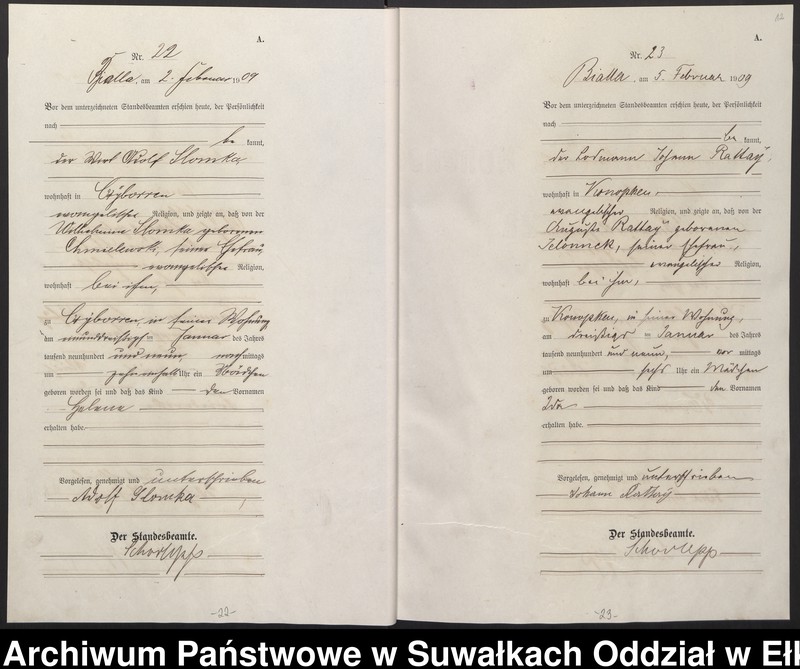 A.
Nr. 22
Bialla, am 2. Februar 1909
Vor dem unterzeichneten Standesbeamten erschien heute, der Persönlichkeit
nach
be kannt,
der Wirt Adolf Slomka
wohnhaft in Czyborren
evangelischer Religion, und zeigte an, daß von der
Wilhelmine Slomka geborenen
Chmielewski, seiner Ehefrau,
evangelischer Religion,
wohnhaft bei ihm,
zu Czyborren, in seiner Wohnung
am neunundzwanzigsten Januar des Jahres
tausend neunhundert und neun, nach mittags
um Uhr ein Mädchen
geboren worden sei und daß das Kind den Vornamen
Helene
erhalten habe.
Vorgelesen, genehmigt und unterschrieben
Adolf Slomka
Der Standesbeamte.
Schorlepp
-22-
A.
Nr. 23
Bialla, am 5. Februar 1909
Vor dem unterzeichneten Standesbeamten erschien heute, der Persönlichkeit
nach
be kannt,
der Losmann Johann Rattay,
wohnhaft in Konopken,
evangelischer Religion, und zeigte an, daß von der
Auguste Rattay geborenen
seiner Ehefrau,
evangelischer Religion,
wohnhaft bei ihm,
zu Konopken, in seiner Wohnung,
am dreißigsten Januar des Jahres
tausend neunhundert und neun, vor mittags
um sechs Uhr ein Mädchen
geboren worden sei und daß das Kind den Vornamen
Ida
erhalten habe.
Vorgelesen, genehmigt und unterschrieben
Johann Rattay
Der Standesbeamte.
Schorlepp
-23-
Archiwum Państwowe w Suwałkach Oddział w Eł